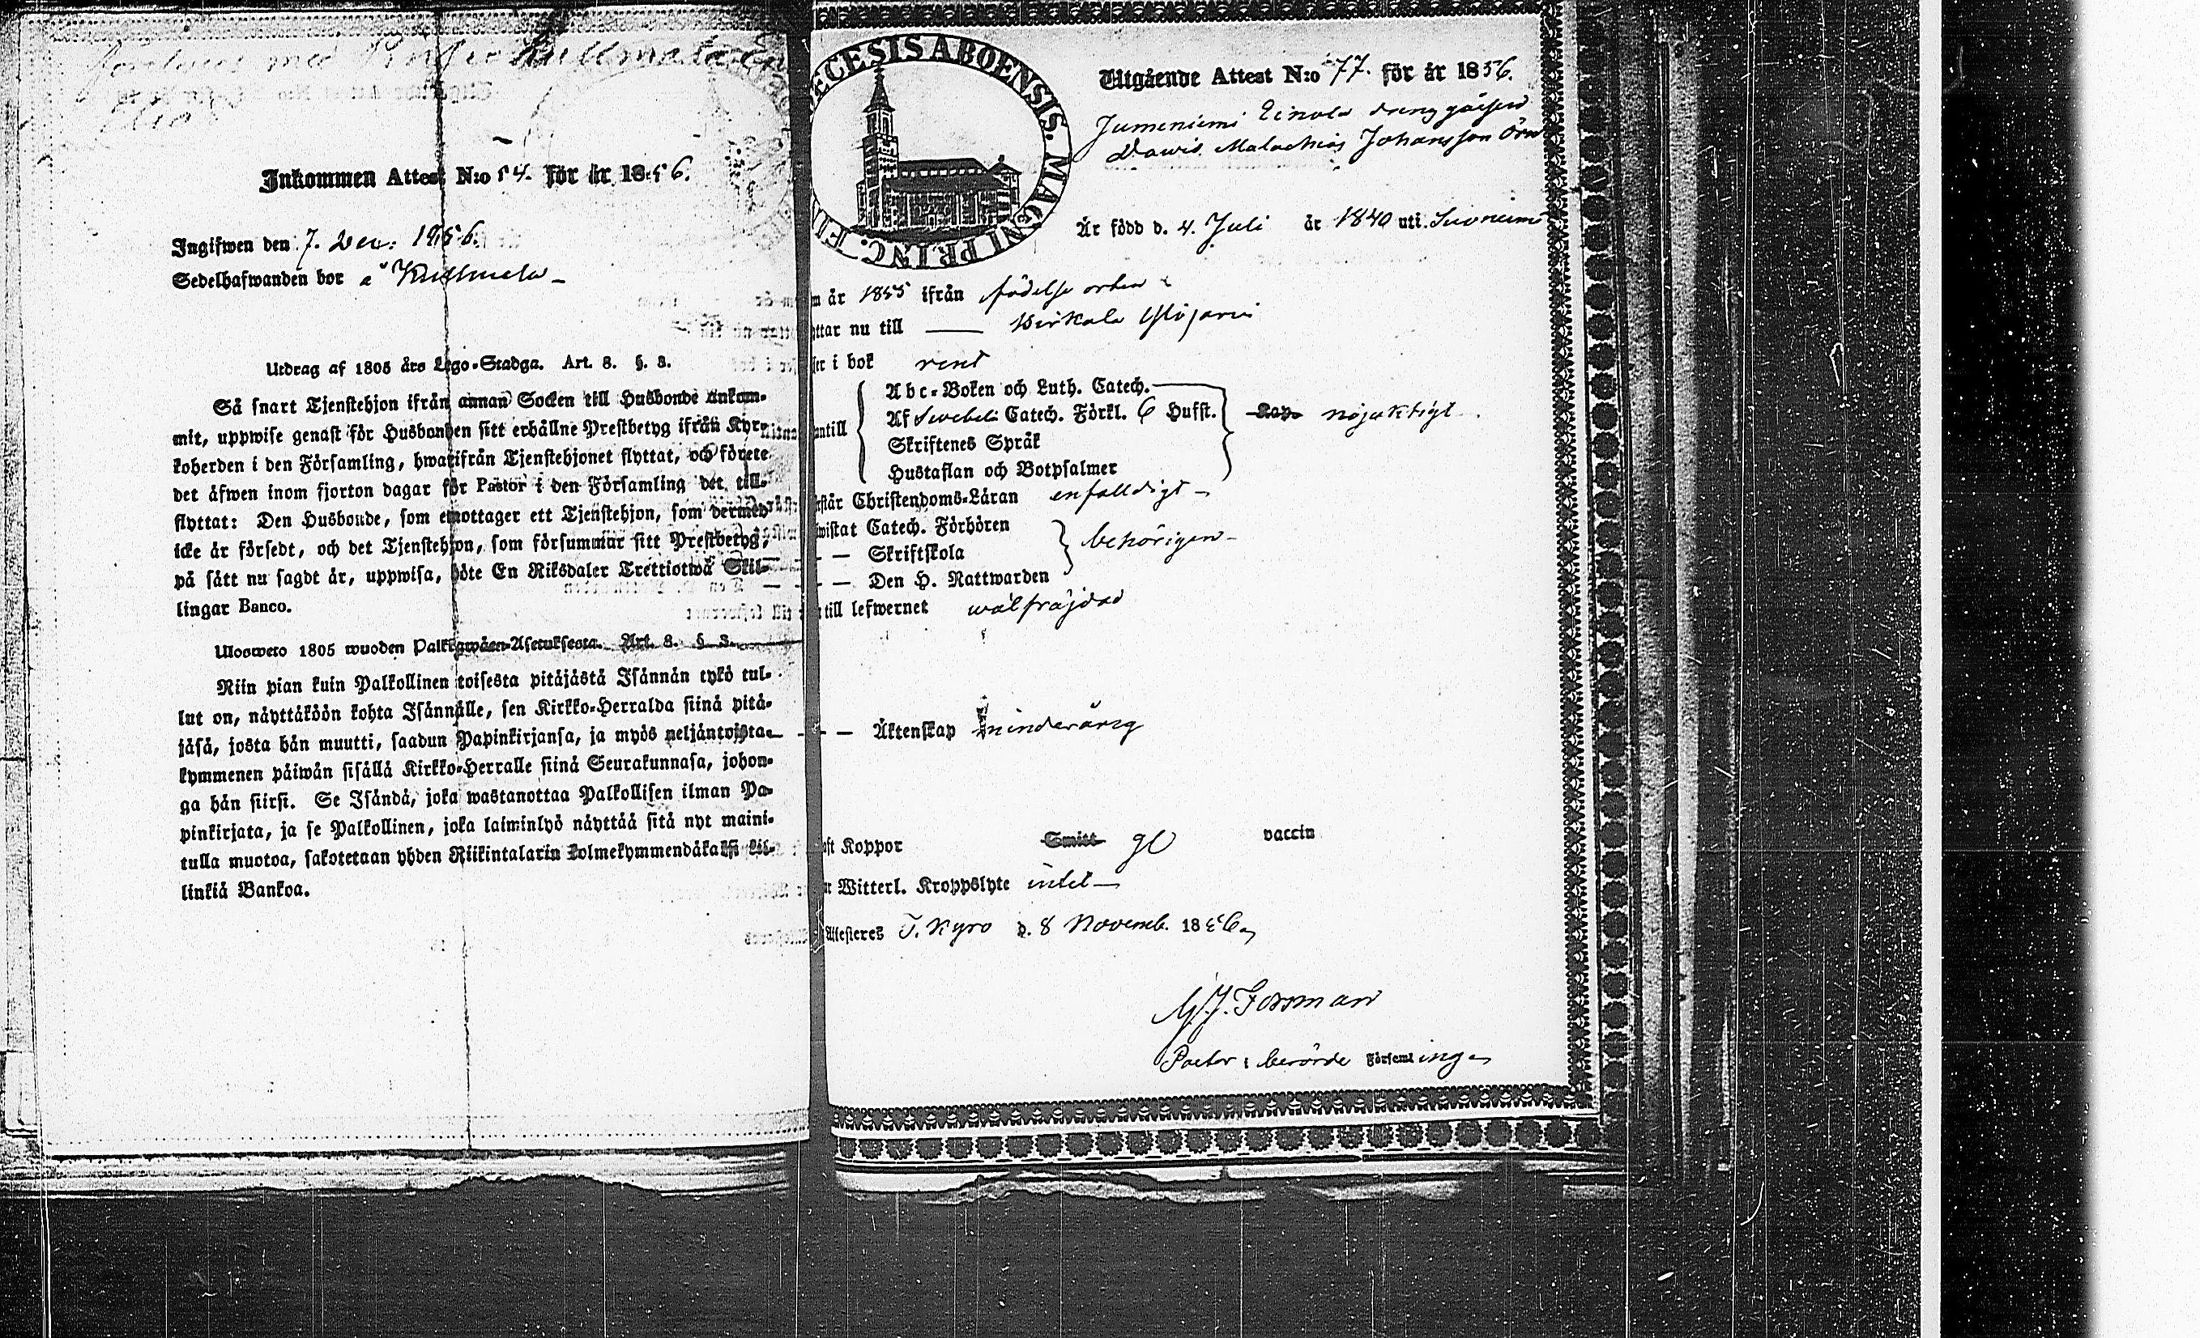 Inkommen Attest N:o 54. för år 1856.
Ingifwen den 7. Dec. 1856.
Sedelhafwanden bor å Kullmela
Utdrag af 1805 års Lego-Stadga. Art. 8. §. 3.
Så snart Tjenstehjon ifrån annan Socken till Husbonde ankom-
mit, uppwise genast för Husbonden sitt erhållne Prestbetyg ifrån Kyr-
koherden i den Församling, hwarifrån Tjenstehjonet flyttat, och förete
det äfwen inom fjorton dagar för Pastor i den Församling det till-
flyttat: Den Husbonde, som emottager ett Tjenstehjon, som dermed
icke är försedt, och det Tjenstehjon, som försummar sitt Prestbetyg,
på sätt nu sagdt är, uppwisa, böte En Riksdaler Trettiotwå Skil-
lingar Banco.
Ulosweto 1805 wuoden Palkkawäen-Asetuksesta. Art. 8. §. 3.
Niin pian kuin Palkollinen toisesta pitäjästä Isännän tykö tul-
lut on, näyttäköön kohta Isännälle, sen Kirkko-Herralda siinä pitä-
jäsä, josta hän muutti, saadun Papinkirjansa, ja myös neljäntoista-
kymmenen päiwän sisällä Kirkko-Herralle siinä Seurakunnasa, johon-
ga hän siirsi. Se Isändä, joka wastanottaa Palkollisen ilman Pa-
pinkirjata, ja se Palkollinen, joka laiminlyö näyttää sitä nyt maini-
tulla muotoa, sakotetaan yhden Riikintalarin kolmekymmendäkaksi kil-
linkiä Bankoa.
ŒCESIS ABOENSIS. MAGNI PRINC. FIN
Utgående Attest N:o 77. för år 1856.
Jumeniemi Einola dreng gossen
Dawid Malachias Johansson Örn
Är född d. 4. Juli år 1840 uti Suoniemi
m år 1855 ifrån födelse orten
ttar nu till Wirkala Ylöjärwi
ser i bok rent
antill
Abc-Boken och Luth. Catech.
Af Swebeli Catech. Förkl. 6 Hufst. nöjaktigt
Skriftenes Språk
Hustaflan och Botpsalmer
står Christendoms-Läran enfalldigt
wistat Catech. Förhören
— Skriftskola behörigen
— — Den H. Nattwarden
till lefwernet wälfräjdad
— — Äktenskap minderårig
ft Koppor Smitt gl vaccin
r Witterl. Kroppslyte intet
Attesteres T. Kyro d. 8 Novemb. 1856
G. J. Forsman
Pastor i berörde Församlingen